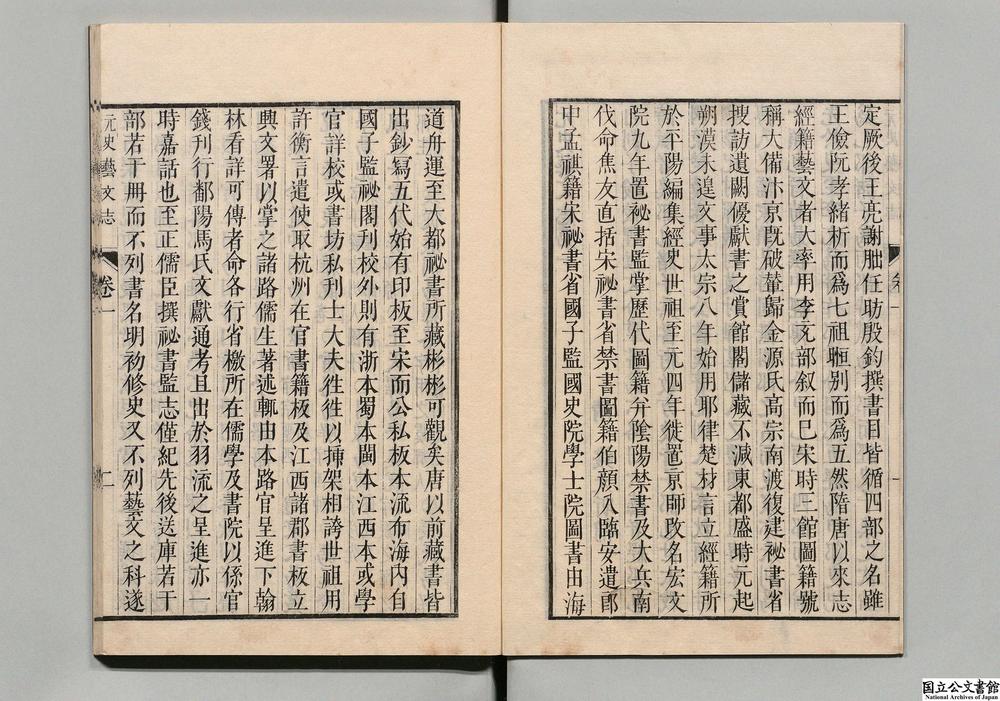 定厥後王亮謝朏任昉殷鈞撰書目皆循四部之名雖
王儉阮孝緒析而爲七祖暅别而爲五然隋唐以來志
經籍藝文者大率用李充部叙而已宋時三館圖籍號
稱大備汴京旣破輦歸金源氏高宗南渡復建祕書省
搜訪遺闕優獻書之賞館閣儲藏不減東都盛時元起
朔漠未遑文事太宗八年始用耶律楚材言立經籍所
於平陽編集經史世祖至元四年徙置京師改名宏文
院九年置祕書監掌歷代圖籍幷陰陽禁書及大兵南
伐命焦友直括宋祕書省禁書圖籍伯顔入臨安遣郎
中孟祺籍宋祕書省國子監國史院學士院圖書由海
卷一
一
道舟運至大都祕書所藏彬彬可觀矣唐以前藏書皆
出鈔寫五代始有印板至宋而公私板本流布海内自
國子監祕閣刋校外則有浙本蜀本閩本江西本或學
官詳校或書坊私刋士大夫徃徃以揷架相誇世祖用
許衡言遣使取杭州在官書籍板及江西諸郡書板立
興文署以掌之諸路儒生著述輒由本路官呈進下翰
林看詳可傳者命各行省檄所在儒學及書院以係官
錢刋行鄱陽馬氏文獻通考且出於羽流之呈進亦一
時嘉話也至正儒臣撰祕書監志僅紀先後送庫若干
部若干冊而不列書名明初修史又不列藝文之科遂
元史藝文志
卷一
二
国立公文書館
National Archives of Japan